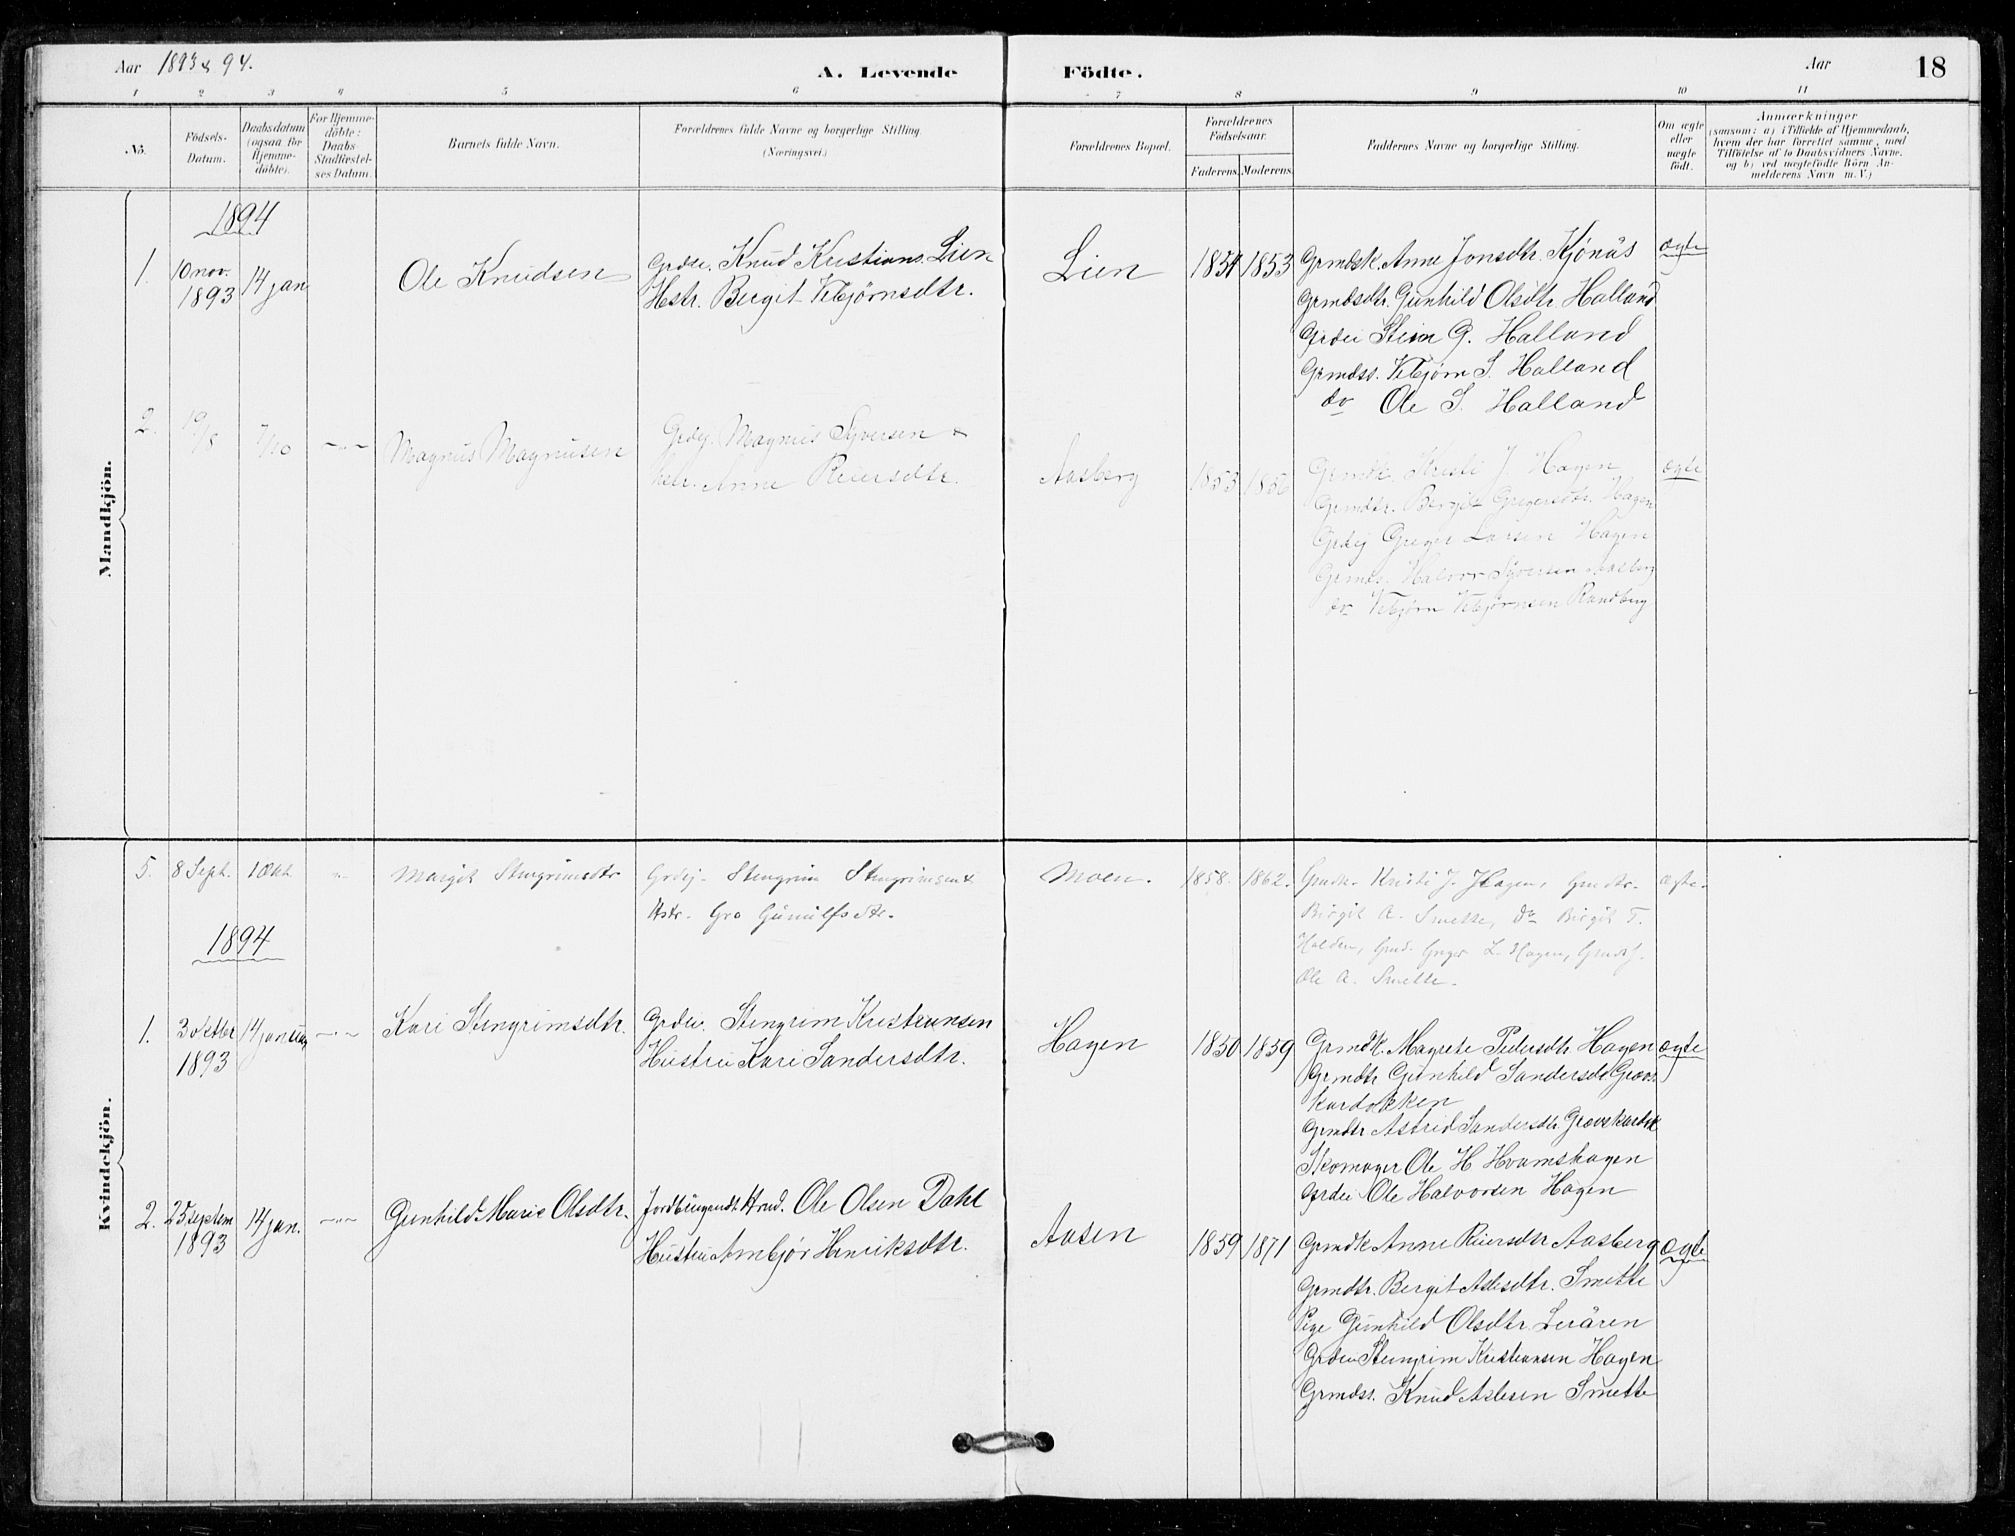 Aar 1893 & 94.
A. Levende Födte.
Aar
18
1 2 3 4 5 6 7 8 9 10 11
No.
Födsels-Datum.
Daabsdatum (ogsaa for Hjemme-döbte).
For Hjemme-döbte: Daabs-Stadfæstel-ses Datum.
Barnets fulde Navn.
Forældrenes fulde Navne og borgerlige Stilling. (Næringsvei.)
Forældrenes Bopæl.
Forældrenes Födselsaar.
Faderens. Moderens.
Faddernes Navne og borgerlige Stilling.
Om ægte eller uægte födt.
Anmærkninger
(saasom: a) i Tilfælde af Hjemmedaab, hvem der har forrettet samme, med Tilföielse af to Daabsvidners Navne. og b) ved uægtefödte Börn An-melderens Navn m. V.)
Mandkjön.
1894
1. 10 nov. 1893 14 jan Ole Knudsen
Grdei. Knud Kristians. Lien
Hstr. Bergit Vebjørnsdtr.
Lien 1854 1853
Grmdsk. Anne Jonsdtr. Kjönäs ægte
Grmdsdtr. Gunhild Olsdtr. Halland
Grdei Stein G. Halland
Grmdss. Vebjørn S. Halland
do Ole S. Halland
2. 19/8 7/10 -"- Magnus Magnusen
Grdej. Magnus Syversen &
Hstr. Anne Reiersdtr.
Aasberg 1853 1856
Grmdk. Kristi J. Hagen ægte
Grmdtr. Bergit Gregersdtr. Hagen
Grdej Greger Larsen Hagen
Grmds. Halvor Syversen Aasberg
do Vebjørn Vebjørnsen Rundberg
Kvindekjön.
5. 8 Sept. 1 Okt. -"- Margit Stengrimsdtr
Grdej. Stengrim Stengrimsen &
Hstr. Gro Gunulfsdtr.
Moen. 1858. 1862.
Grmdk. Kristi J. Hagen, Grmdtr. ægte.
Birgit A. Smette, do Birgit T.
Halden, Grmd. Greger L. Hagen, Grmds.
Ole A. Smette.
1894
1. 3 oktbr 1893 14 januar -"- Kari Stengrimsdtr.
Grdei. Stengrim Kristiansen
Hustru Kari Sandersdtr.
Hagen 1850 1859
Grmdk. Magrete Pedersdtr Hagen ægte
Grmdtr Gunhild Sandersdtr Grøvs
kardokken
Grmdtr Astrid Sandersdtr Grøvskardok
Skomager Ole H Hvamshagen
Grdei Ole Halvorsen Hagen
2. 25 septem 1893 14 jan. -"- Gunhild Marie Olsdtr.
Jordbrugende Hmd. Ole Olsen Dahl
Hustru Ambjør Henriksdtr.
Aasen 1859 1871
Grmdk Anne Reiersdtr Aasberg ægte
Grmdtr. Bergit Aslesdtr. Smette
Pige Gunhild Olsdtr. Leråen
Grdei Stengrim Kristiansen Hagen
Grmdss. Knud Aslesen Smette